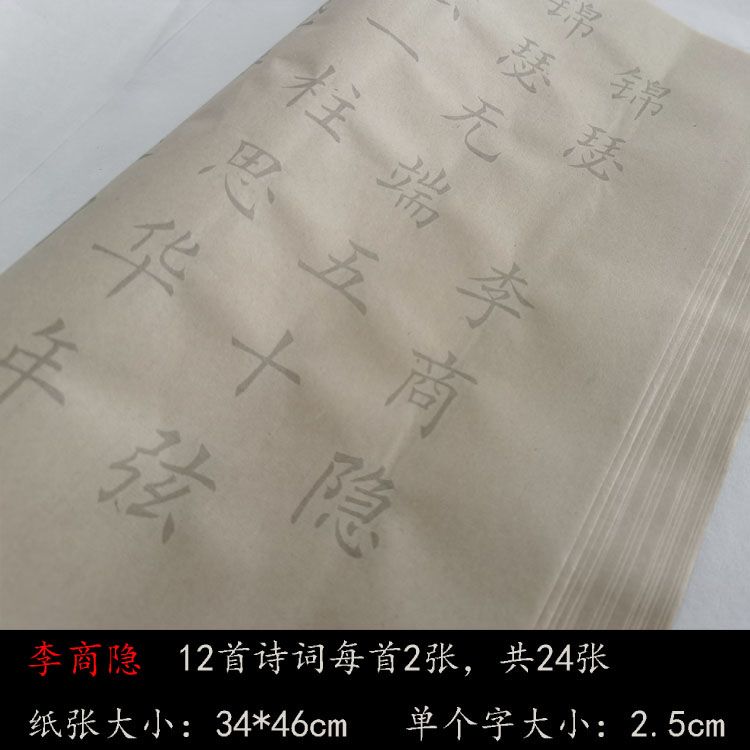 锦瑟 李商隐
锦瑟无端五十弦
一柱思华年
李商隐 12首诗词每首2张，共24张
纸张大小：34*46cm 单个字大小：2.5cm